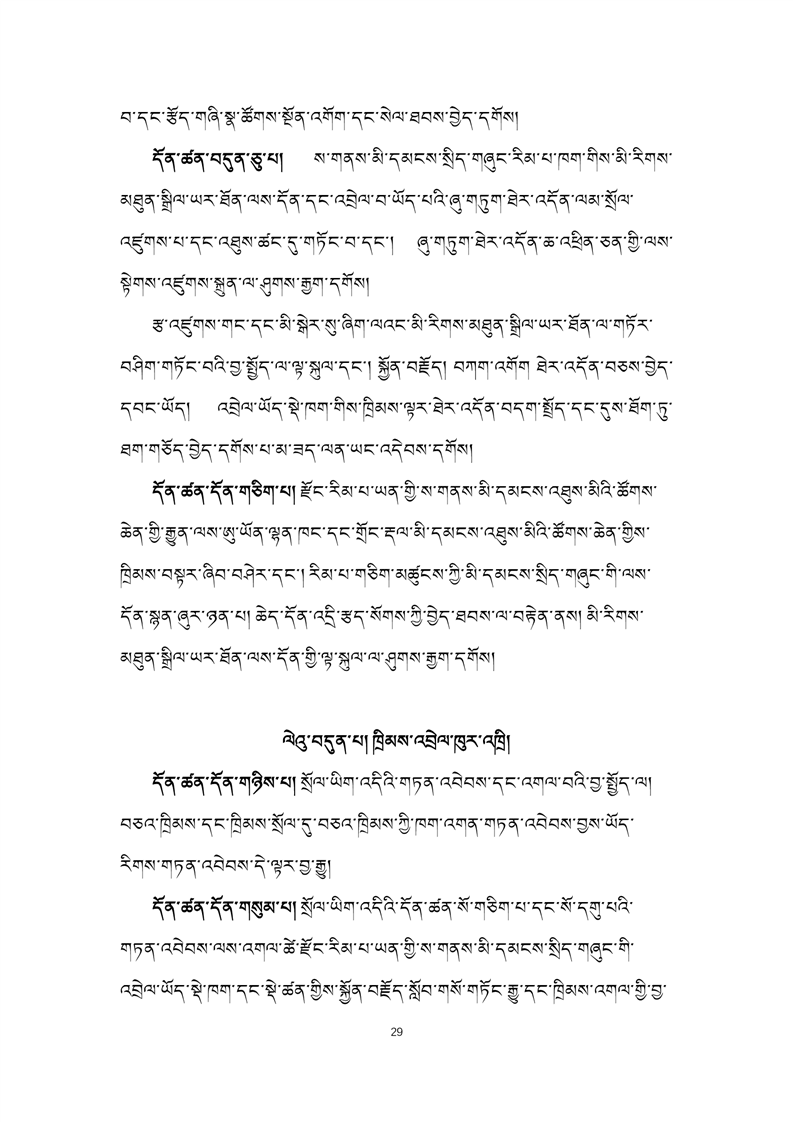 བ་དང་རྩོད་གཞི་སྣ་ཚོགས་སྔོན་འགོག་དང་སེལ་ཐབས་བྱེད་དགོས།
དོན་ཚན་བདུན་ཅུ་པ། ས་གནས་མི་དམངས་སྲིད་གཞུང་རིམ་པ་ཁག་གིས་མི་རིགས་
མཐུན་སྒྲིལ་ཡར་ཐོན་ལས་དོན་དང་འབྲེལ་བ་ཡོད་པའི་ཞུ་གཏུག་ཐེར་འདོན་ལམ་སྲོལ་
འཛུགས་པ་དང་འཐུས་ཚང་དུ་གཏོང་བ་དང་། ཞུ་གཏུག་ཐེར་འདོན་ཆ་འཕྲིན་ཅན་གྱི་ལས་
སྟེགས་འཛུགས་སྐྲུན་ལ་ཤུགས་རྒྱག་དགོས།
རྩ་འཛུགས་གང་དང་མི་སྒེར་སུ་ཞིག་ལའང་མི་རིགས་མཐུན་སྒྲིལ་ཡར་ཐོན་ལ་གཏོར་
བཤིག་གཏོང་བའི་བྱ་སྤྱོད་ལ་ལྟ་སྐུལ་དང་། སྐྱོན་བརྗོད། བཀག་འགོག ཐེར་འདོན་བཅས་བྱེད་
དབང་ཡོད། འབྲེལ་ཡོད་སྡེ་ཁག་གིས་ཁྲིམས་ལྟར་ཐེར་འདོན་བདག་སྤྲོད་དང་དུས་ཐོག་ཏུ་
ཐག་གཅོད་བྱེད་དགོས་པ་མ་ཟད་ལན་ཡང་འདེབས་དགོས།
དོན་ཚན་དོན་གཅིག་པ། རྫོང་རིམ་པ་ཡན་གྱི་ས་གནས་མི་དམངས་འཐུས་མིའི་ཚོགས་
ཆེན་གྱི་རྒྱུན་ལས་ཨུ་ཡོན་ལྷན་ཁང་དང་གྲོང་རྡལ་མི་དམངས་འཐུས་མིའི་ཚོགས་ཆེན་གྱིས་
ཁྲིམས་བསྟར་ཞིབ་བཤེར་དང་། རིམ་པ་གཅིག་མཚུངས་ཀྱི་མི་དམངས་སྲིད་གཞུང་གི་ལས་
དོན་སྙན་ཞུར་ཉན་པ། ཆེད་དོན་འདྲི་རྩད་སོགས་ཀྱི་བྱེད་ཐབས་ལ་བརྟེན་ནས། མི་རིགས་
མཐུན་སྒྲིལ་ཡར་ཐོན་ལས་དོན་གྱི་ལྟ་སྐུལ་ལ་ཤུགས་རྒྱག་དགོས།
ལེའུ་བདུན་པ། ཁྲིམས་འབྲེལ་ཁུར་འཁྲི།
དོན་ཚན་དོན་གཉིས་པ། སྲོལ་ཡིག་འདིའི་གཏན་འབེབས་དང་འགལ་བའི་བྱ་སྤྱོད་ལ།
བཅའ་ཁྲིམས་དང་ཁྲིམས་སྲོལ་དུ་བཅའ་ཁྲིམས་ཀྱི་ཁག་འགན་གཏན་འབེབས་བྱས་ཡོད་
རིགས་གཏན་འབེབས་དེ་ལྟར་བྱ་རྒྱུ།
དོན་ཚན་དོན་གསུམ་པ། སྲོལ་ཡིག་འདིའི་དོན་ཚན་སོ་གཅིག་པ་དང་སོ་དགུ་པའི་
གཏན་འབེབས་ལས་འགལ་ཚེ་རྫོང་རིམ་པ་ཡན་གྱི་ས་གནས་མི་དམངས་སྲིད་གཞུང་གི་
འབྲེལ་ཡོད་སྡེ་ཁག་དང་སྡེ་ཚན་གྱིས་སྐྱོན་བརྗོད་སློབ་གསོ་གཏོང་རྒྱུ་དང་ཁྲིམས་འགལ་གྱི་བྱ་
29